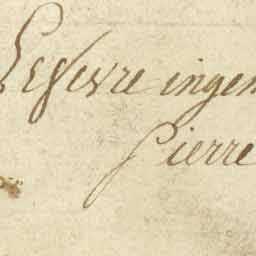 Lefevre ingen
Pierre